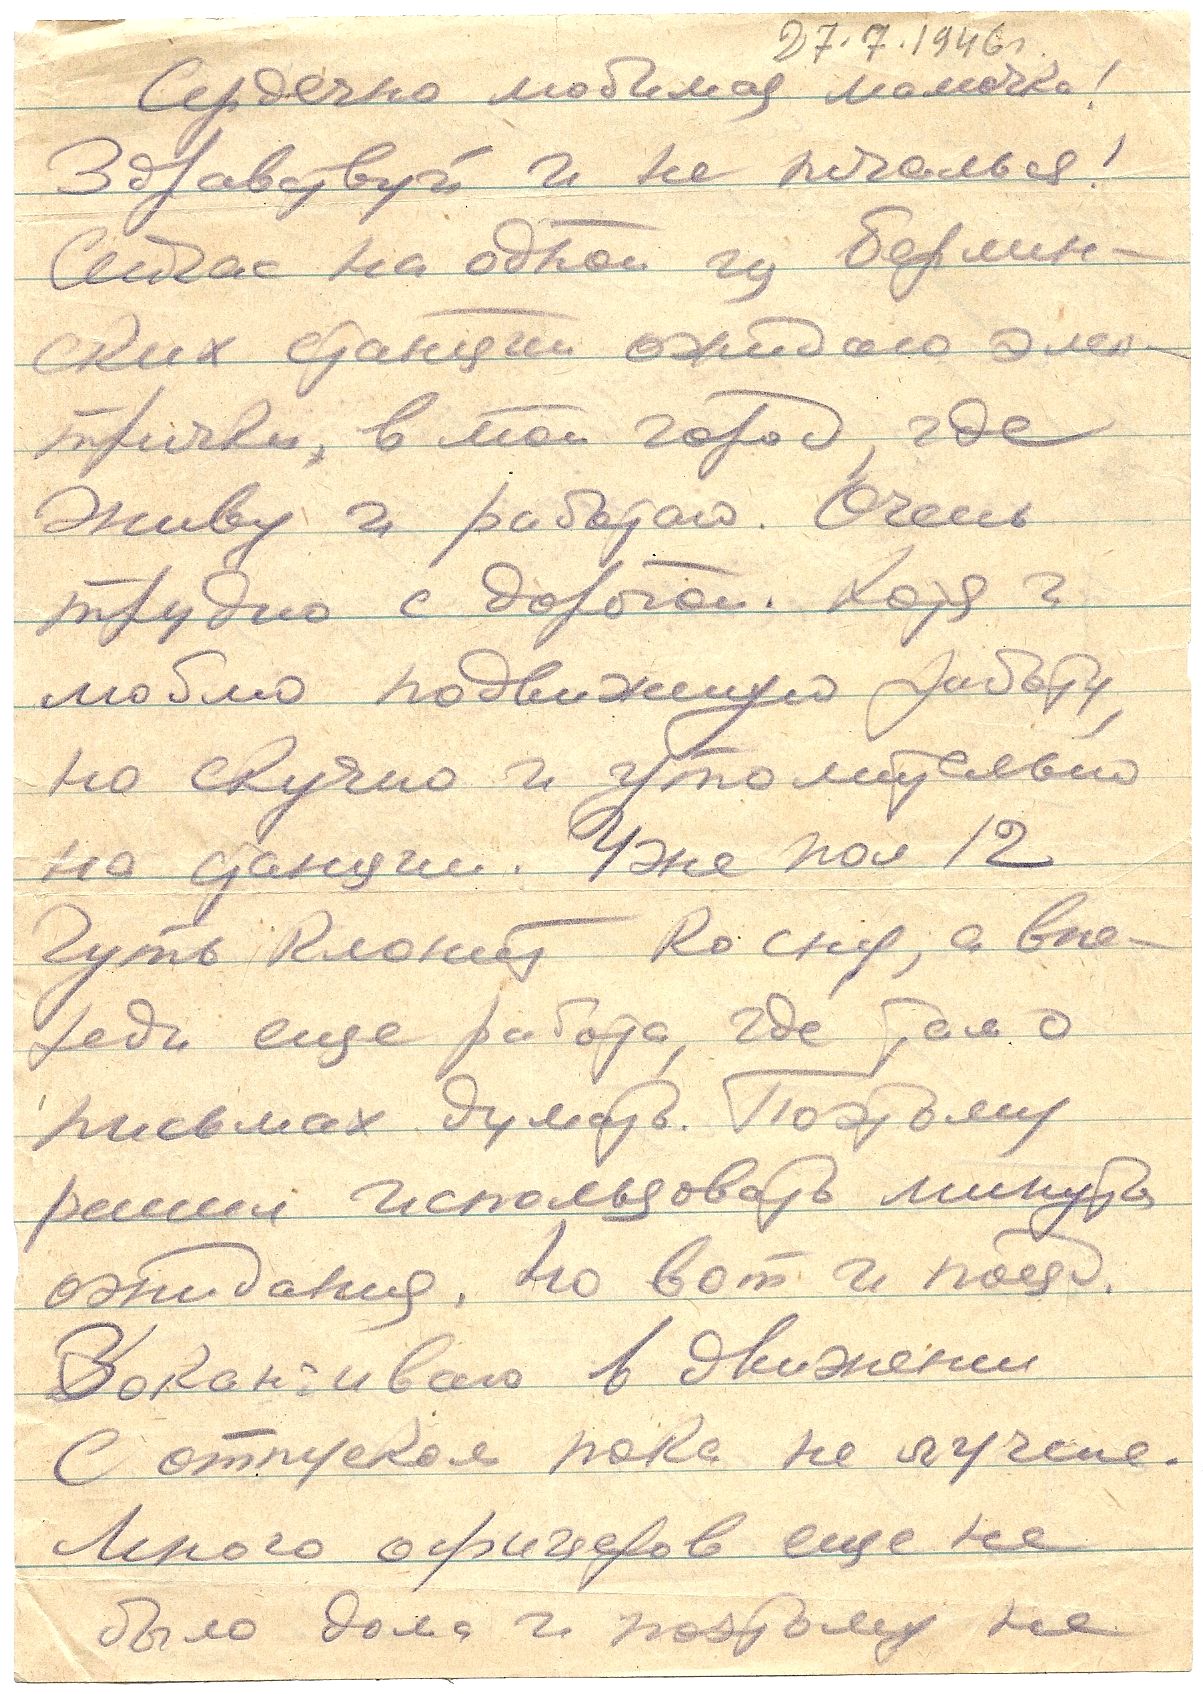 27.7.1946г.
Сердечно любимая мамочка!
Здравствуй и не печалься!
Сейчас на одной из Берлин-
ских станций ожидаю элек-
трички, в мой город, где
живу и работаю. Очень
трудно с дорогой. Хотя и
люблю подвижную работу,
но скучно и утомительно
на станции. Уже пол 12
Чуть клонит ко сну, а впе-
реди еще работа, где там о
письмах думать. Поэтому
решил использовать минуты
ожидания. Но вот и поезд.
Заканчиваю в движении
С отпуском пока не лучше.
Много офицеров еще не
было дома и поэтому не